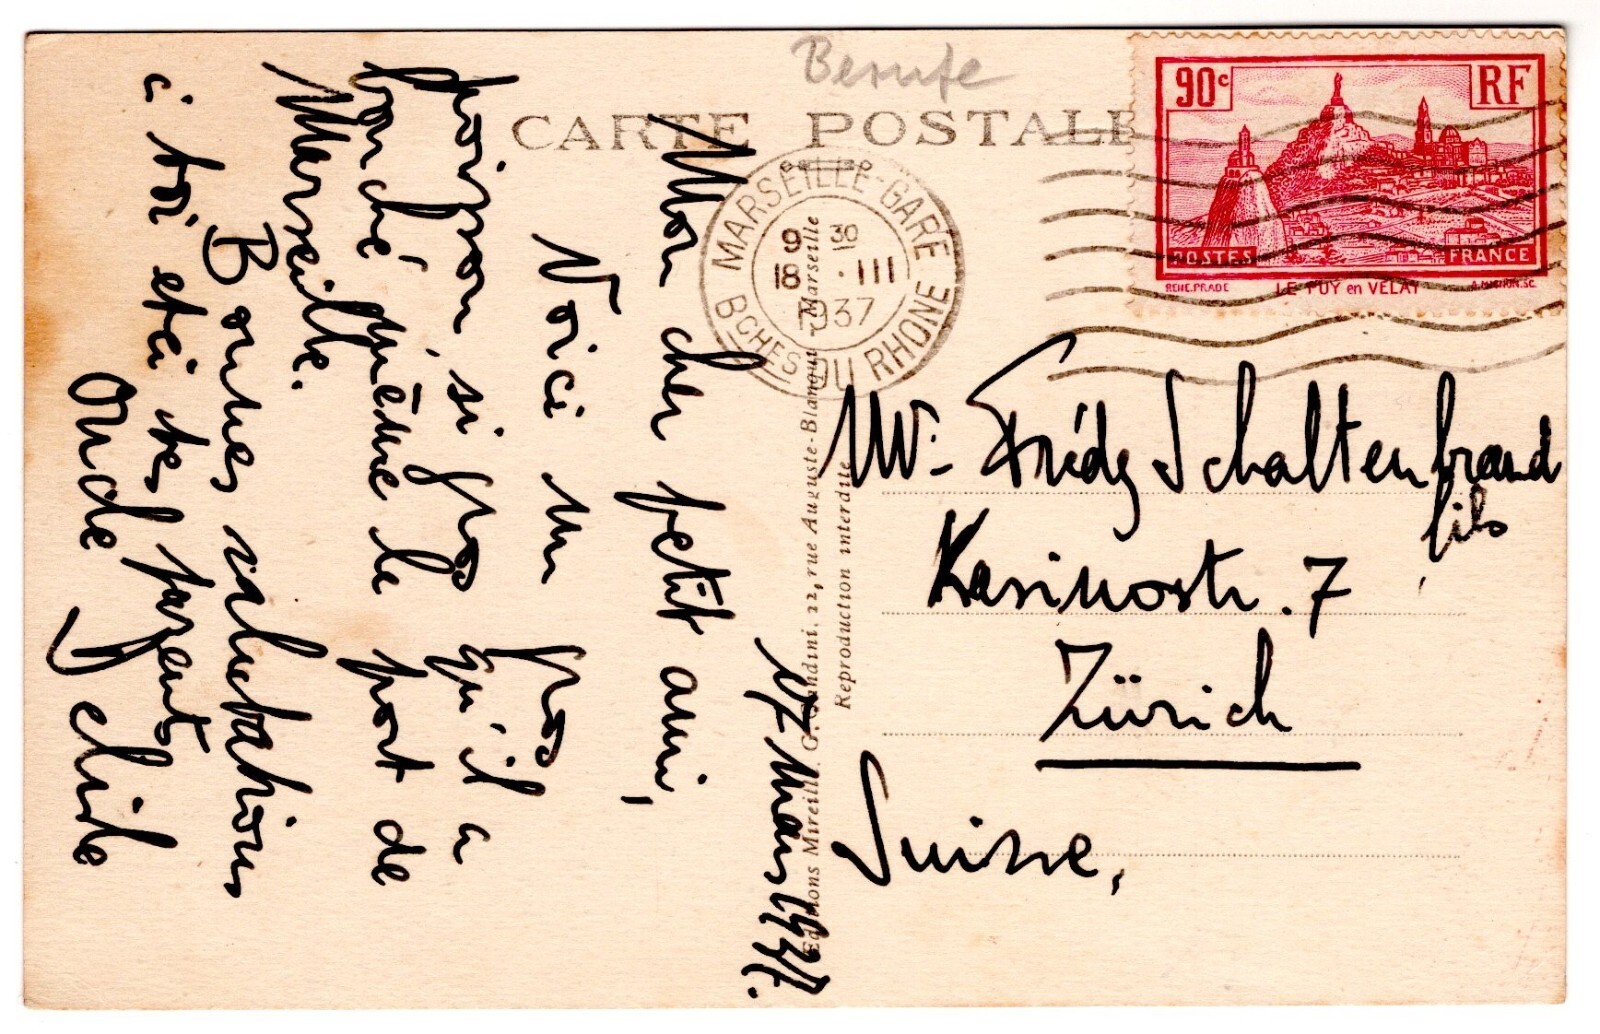 Berufe
CARTE POSTALE
90c
RF
POSTES
FRANCE
RENE.PRADE
LE PUY en VELAY
MARSEILLE-GARE
9 30
18 . III
1937
BCHES DU RHONE
Editions Mireille. G. Gandini. 22, rue Auguste-Blanqui - Marseille
Reproduction interdite
17 Mars 1937.
Mon cher petit ami,
Voici un gros
poisson, si gros qu'il a
bouché même le port de
Marseille.
Bonnes salutations
à toi et à tes parents
Oncle Jelide
Mr. Frédy Schaltenbrand
fils
Kasinostr. 7
Zürich
Suisse,